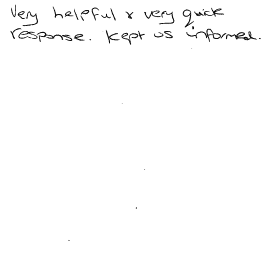 Very helpful & very quick
response. Kept us informed.